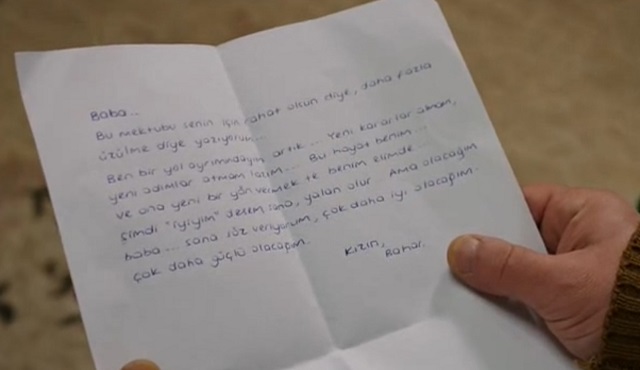 Baba...
Bu mektubu senin için rahat olsun diye, daha fazla
üzülme diye yazıyorum...
Ben bir yol ayrımındayım artık... Yeni kararlar almam,
yeni adımlar atmam lazım.... Bu hayat benim...
ve ona yeni bir yön vermek te benim elimde...
Şimdi "iyiyim" desem sana, yalan olur. Ama olacağım
baba.... sana söz veriyorum, çok daha iyi olacağım.
Çok daha güçlü olacağım.
Kızın,
Bahar.